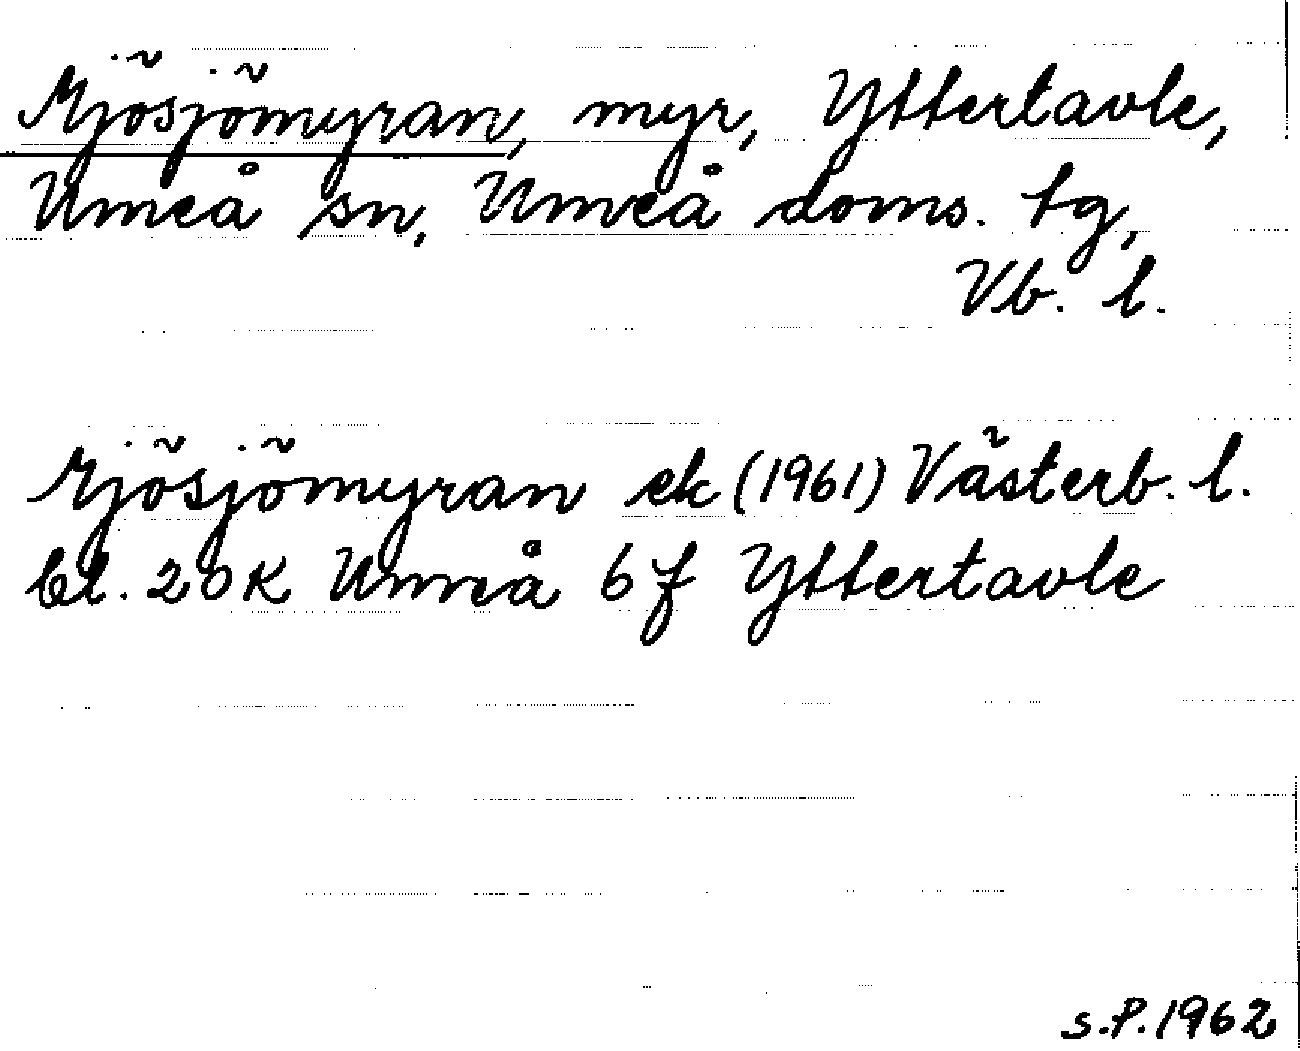 Mjösjömyran, myr, Yttertavle,
Umeå sn, Umeå doms. tg,
Vb. l.
Mjösjömyran ek (1961) Västerb. l.
bl. 20K Umeå 6f Yttertavle
S.P. 1962